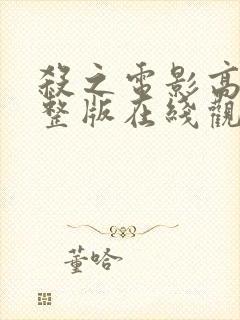 殺之電影高
整版在綫觀
董哈